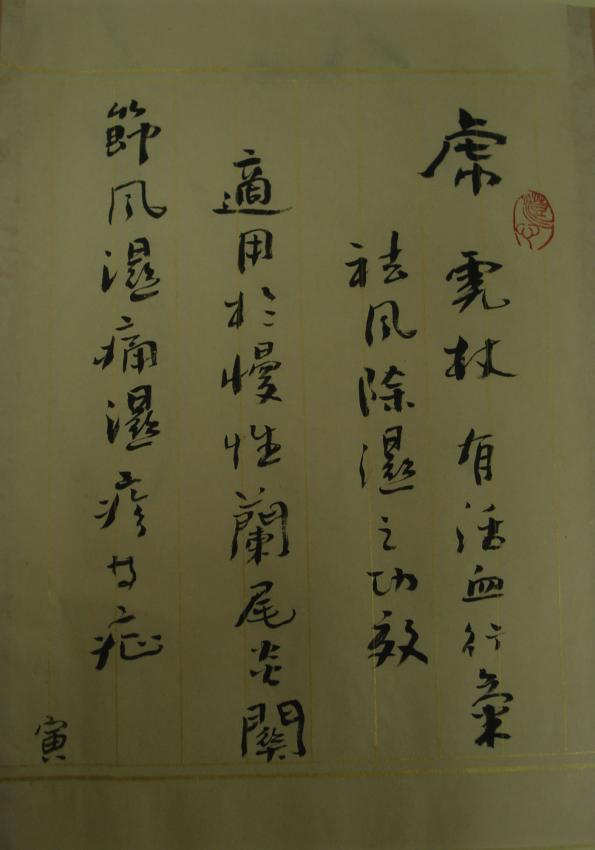 虎 虎杖 有活血行氣
祛風除濕之功效
適用於慢性蘭尾炎關
節風濕痛濕疹等症
寅